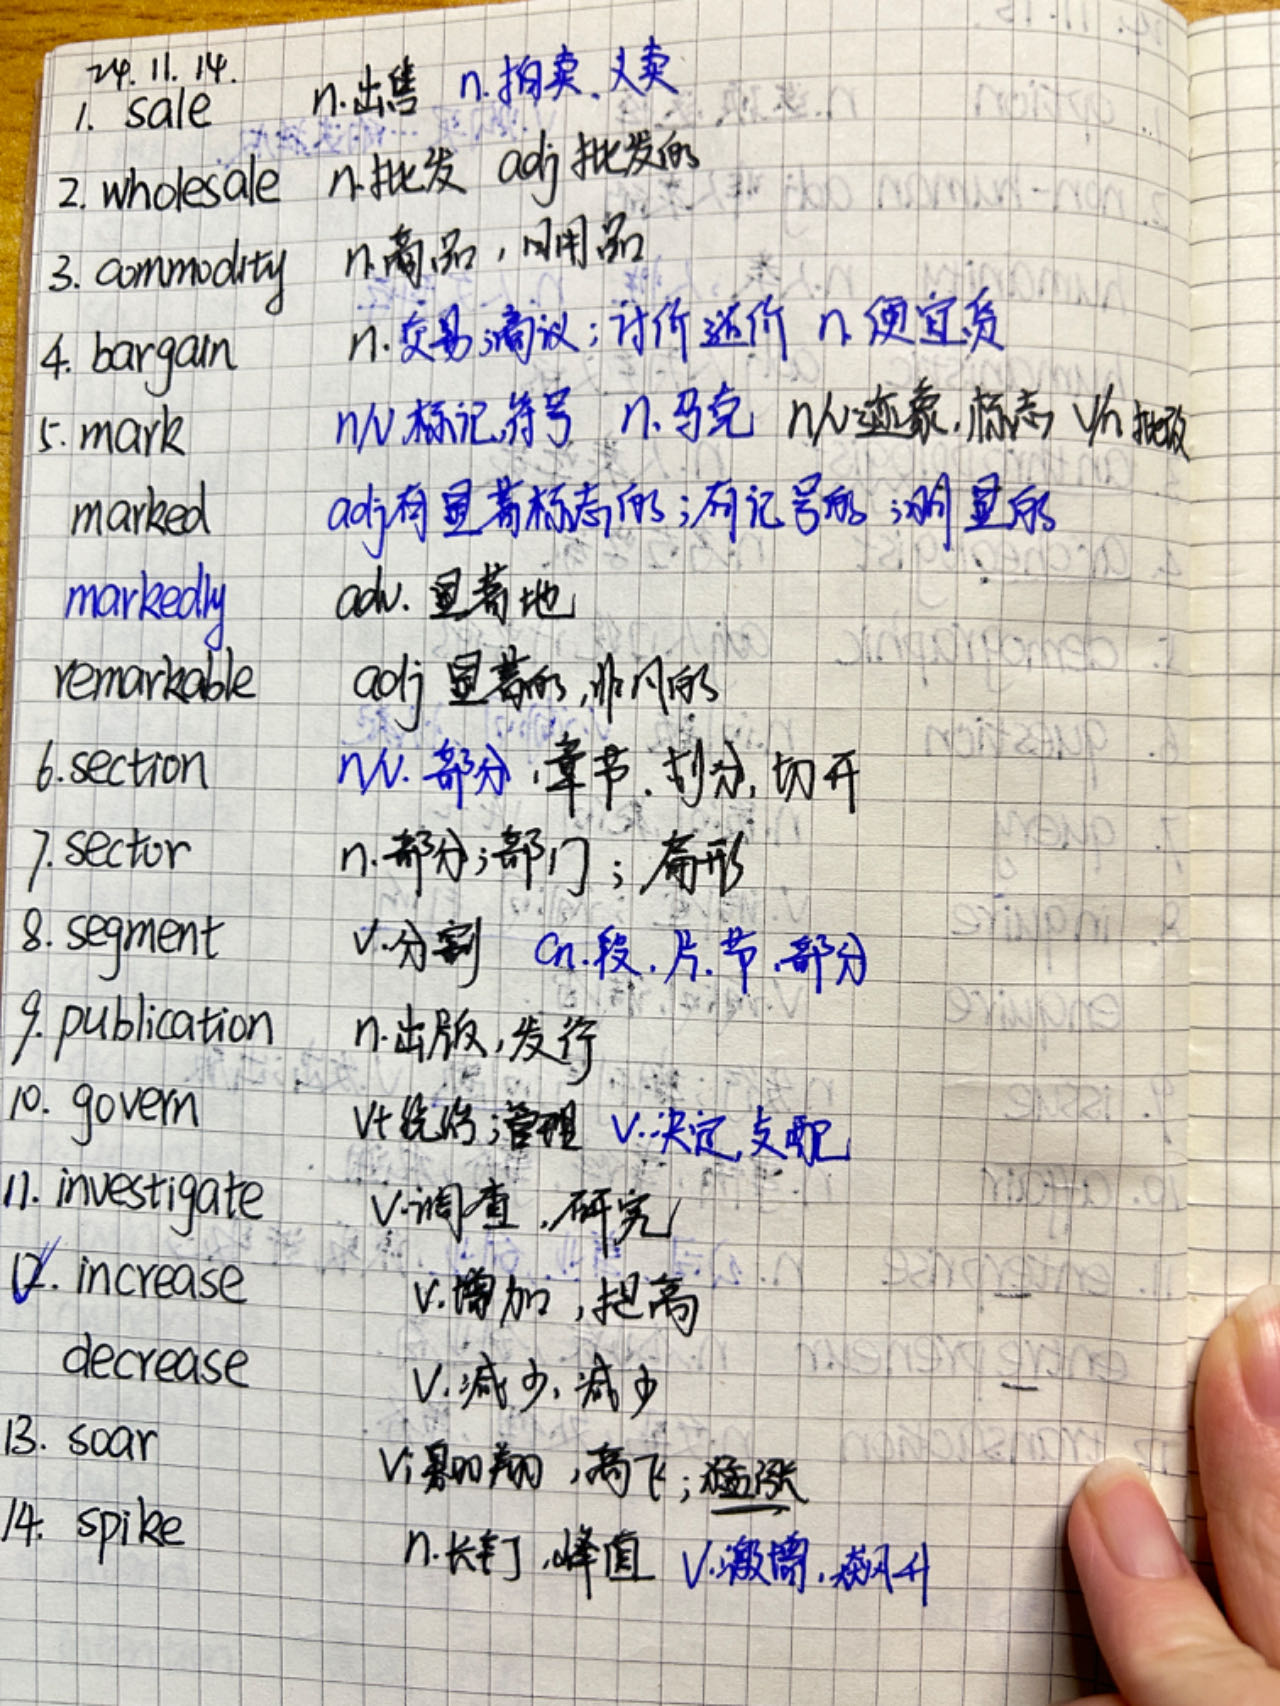 24.11.14.
1. sale n.出售 n.拍卖、义卖
2. wholesale n.批发 adj批发的
3. commodity n.商品，日用品
4. bargain n.交易；商议；讨价还价 n.便宜货
5. mark n/v.标记,符号 n.马克 n/v迹象,标志 v/n批改
marked adj有显著标志的；有记号的；明显的
markedly adv.显著地
remarkable adj 显著的,非凡的
6.section n/v.部分,章节、划分,切开
7.sector n.部分；部门；扇形
8. segment v.分割 Cn.段、片、节、部分
9. publication n.出版,发行
10. govern vt统治；管理 v.决定,支配
11. investigate v.调查,研究
12. increase v.增加,提高
decrease v.减少,减少
13. soar vi翱翔,高飞；猛涨
14. spike n.长钉,峰值 v.激增,飙升